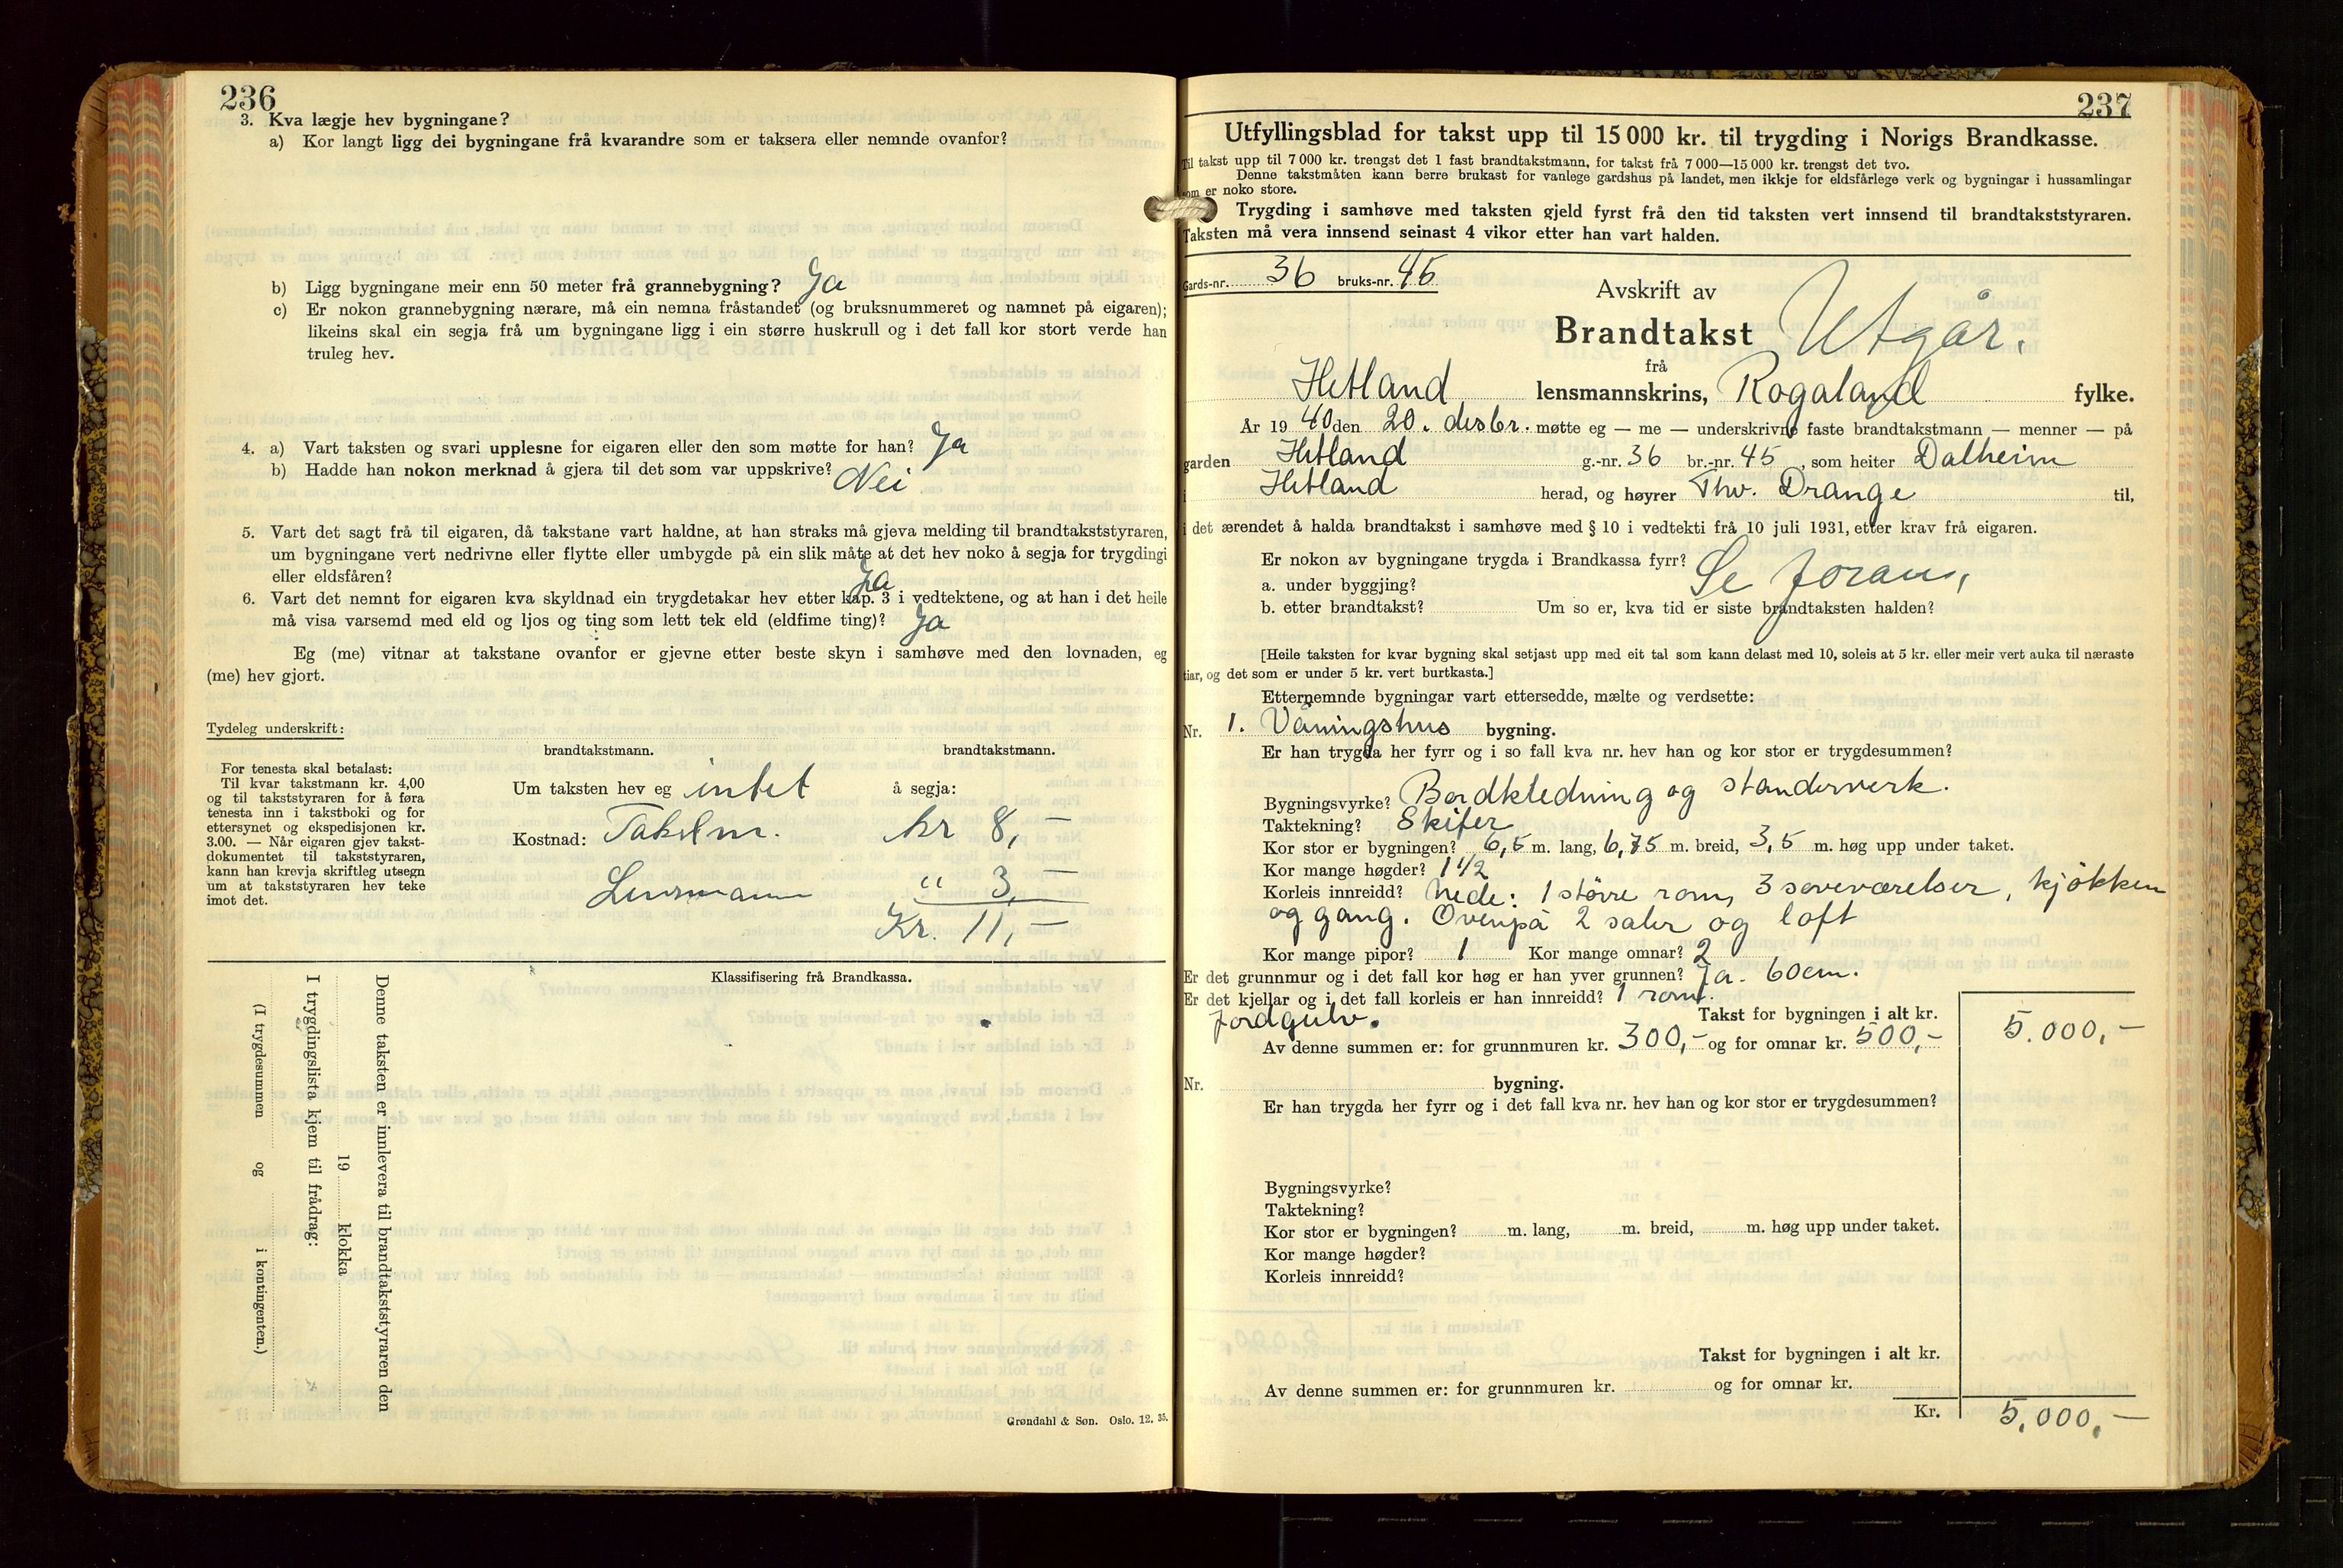 236
3. Kva lægje hev bygningane?
a) Kor langt ligg dei bygningane frå kvarandre som er taksera eller nemnde ovanfor?
b) Ligg bygningane meir enn 50 meter frå grannebygning? Ja
c) Er nokon grannebygning nærare, må ein nemna fråstandet (og bruksnummeret og namnet på eigaren);
likeins skal ein segja frå um bygningane ligg i ein større huskrull og i det fall kor stort verde han
truleg hev.
4. a) Vart taksten og svari upplesne for eigaren eller den som møtte for han? Ja
b) Hadde han nokon merknad å gjera til det som var uppskrive? Nei
5. Vart det sagt frå til eigaren, då takstane vart haldne, at han straks må gjeva melding til brandtakststyraren,
um bygningane vert nedrivne eller flytte eller umbygde på ein slik måte at det hev noko å segja for trygdingi
eller eldsfåren? Ja
6. Vart det nemnt for eigaren kva skyldnad ein trygdetakar hev etter kap. 3 i vedtektene, og at han i det heile
må visa varsemd med eld og ljos og ting som lett tek eld (eldfime ting)? Ja
Eg (me) vitnar at takstane ovanfor er gjevne etter beste skyn i samhøve med den lovnaden, eg
(me) hev gjort.
Tydeleg underskrift:
brandtakstmann. brandtakstmann.
For tenesta skal betalast:
Til kvar takstmann kr. 4,00
og til takststyraren for å føra
tenesta inn i takstboki og for
ettersynet og ekspedisjonen kr.
3.00. — Når eigaren gjev takst-
dokumentet til takststyraren,
kann han krevja skriftleg utsegn
um at takststyraren hev teke
imot det.
Um taksten hev eg intet å segja:
Kostnad: Takstm. kr 8,—
Lensmann " 3,—
Kr. 11,—
Klassifisering frå Brandkassa.
Denne taksten er innlevera til brandtakststyraren den
19 klokka
I trygdingslista kjem til frådrag:
(I trygdesummen og i kontingenten.)
Grøndahl & Søn. Oslo. 12. 35.
237
Utfyllingsblad for takst upp til 15 000 kr. til trygding i Norigs Brandkasse.
Til takst upp til 7 000 kr. trengst det 1 fast brandtakstmann, for takst frå 7 000—15 000 kr. trengst det tvo.
Denne takstmåten kann berre brukast for vanlege gardshus på landet, men ikkje for eldsfårlege verk og bygningar i hussamlingar
som er noko store.
Trygding i samhøve med taksten gjeld fyrst frå den tid taksten vert innsend til brandtakststyraren.
Taksten må vera innsend seinast 4 vikor etter han vart halden.
Gards-nr. 36 bruks-nr. 45
Avskrift av
Brandtakst Utgår.
frå
Hetland lensmannskrins, Rogaland fylke.
År 19 40 den 20. desbr. møtte eg — me — underskrivne faste brandtakstmann — menner — på
garden Hetland g.-nr. 36 br.-nr. 45, som heiter Dalheim
i Hetland herad, og høyrer Thv. Drange til,
i det ærendet å halda brandtakst i samhøve med § 10 i vedtekti frå 10 juli 1931, etter krav frå eigaren.
Er nokon av bygningane trygda i Brandkassa fyrr? Se foran,
a. under byggjing?
b. etter brandtakst? Um so er, kva tid er siste brandtaksten halden?
[Heile taksten for kvar bygning skal setjast upp med eit tal som kann delast med 10, soleis at 5 kr. eller meir vert auka til næraste
tiar, og det som er under 5 kr. vert burtkasta.]
Etternemnde bygningar vart ettersedde, mælte og verdsette:
Nr. 1. Våningshus bygning.
Er han trygda her fyrr og i so fall kva nr. hev han og kor stor er trygdesummen?
Bygningsvyrke? Bordkledning og standerverk.
Taktekning? Skifer
Kor stor er bygningen? 6,5 m. lang, 6,75 m. breid, 3,5 m. høg upp under taket.
Kor mange høgder? 1 1/2
Korleis innreidd? Nede: 1 større rom, 3 soveværelser, kjøkken
og gang. Ovenpå 2 saler og loft
Kor mange pipor? 1 Kor mange omnar? 2
Er det grunnmur og i det fall kor høg er han yver grunnen? Ja. 60cm.
Er det kjellar og i det fall korleis er han innreidd? 1 rom.
Jordgulv. Takst for bygningen i alt kr. 5.000,—
Av denne summen er: for grunnmuren kr. 300,— og for omnar kr. 500,—
Nr. bygning.
Er han trygda her fyrr og i det fall kva nr. hev han og kor stor er trygdesummen?
Bygningsvyrke?
Taktekning?
Kor stor er bygningen? m. lang, m. breid, m. høg upp under taket.
Kor mange høgder?
Korleis innreidd?
Takst for bygningen i alt kr.
Av denne summen er: for grunnmuren kr. og for omnar kr.
Kr. 5.000,—